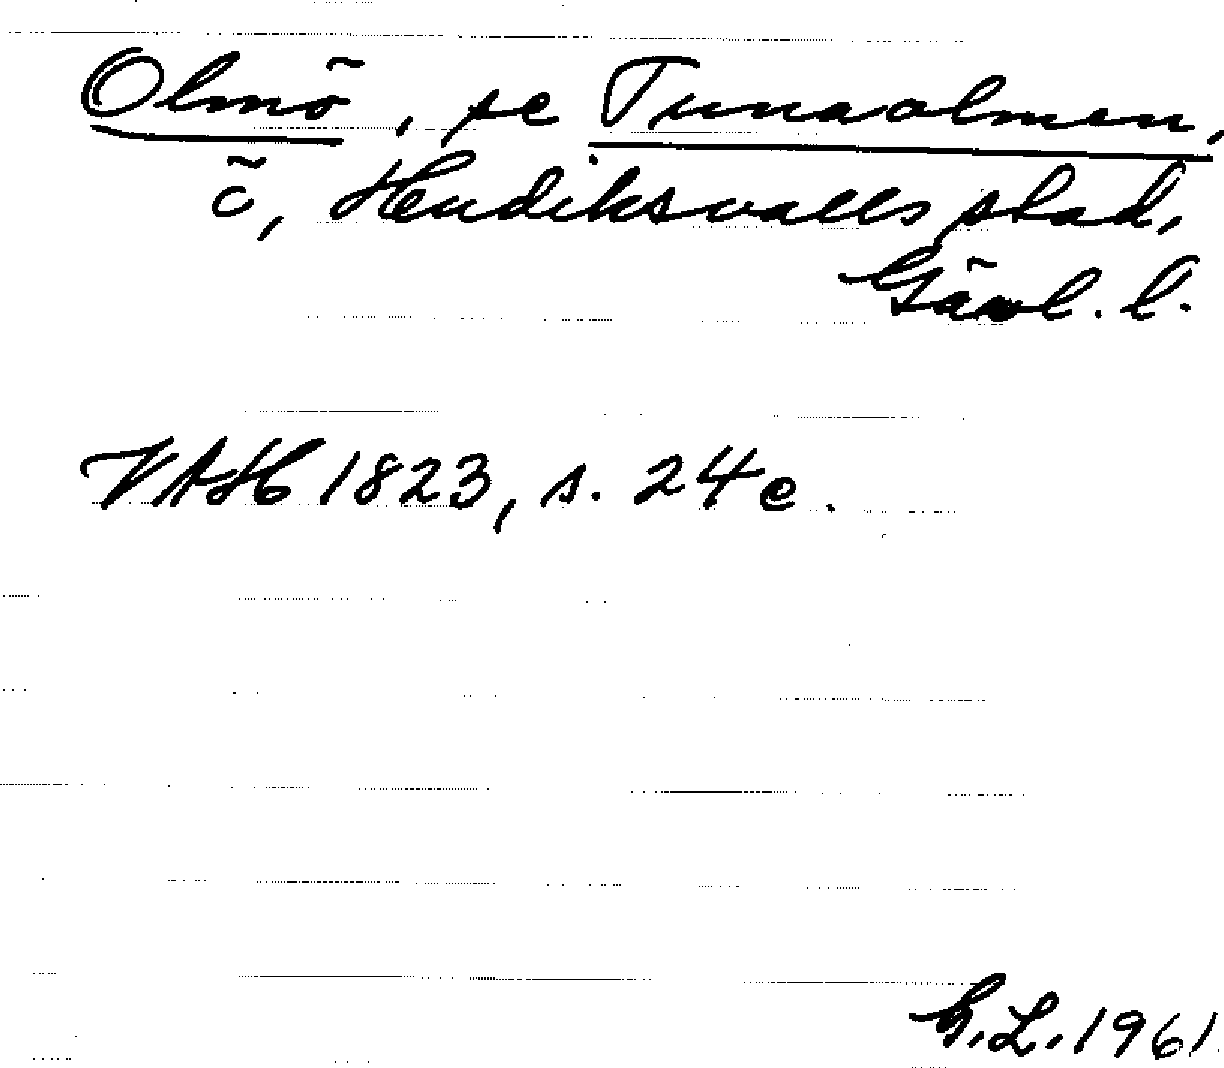 Olmö, se Tunaolmen,
ö, Hudiksvalls stad,
Gävl. l.
VAH 1823, s. 24 e.
G.L. 1961.